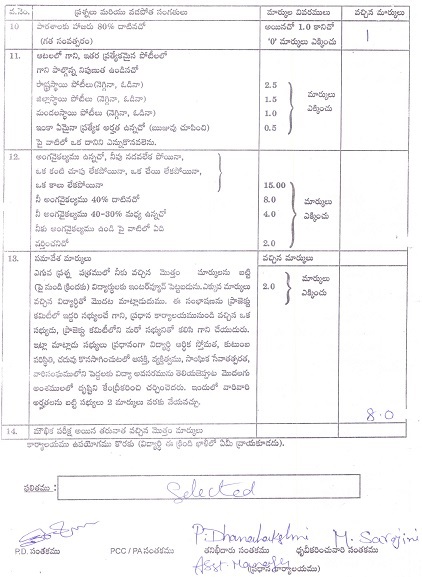 వ.నెం. ప్రశ్నలు మరియు వడపోత సంగతులు మార్కుల వివరములు వచ్చిన మార్కులు
10 పాఠశాలకు హాజరు 80% దాటినచో అయినచో 1.0 కానిచో
(గత సంవత్సరం) '0' మార్కులు ఎక్కించు 1
11. ఆటలలో గాని, ఇతర ప్రత్యేకమైన పోటీలలో
గాని పాల్గొన్న నిపుణుత ఉండినచో
రాష్ట్రస్థాయి పోటీలు (నెగ్గినా, ఓడినా) 2.5
జిల్లాస్థాయి పోటీలు (నెగ్గినా, ఓడినా) 1.5 మార్కులు
మండలస్థాయి పోటీలు (నెగ్గినా, ఓడినా) 1.0 ఎక్కించు
ఇంకా ఏమైనా ప్రత్యేక అర్హత ఉన్నచో (ఋజువు చూపించి) 0.5
పై వాటిలో ఒక దానిని ఎన్నుకొనవలెను.
12. అంగవైకల్యము ఉన్నచో, నీవు నడవలేక పోయినా,
ఒక కంటి చూపు లేకపోయినా, ఒక చేయి లేకపోయినా,
ఒక కాలు లేకపోయినా 15.00
నీ అంగవైకల్యము 40% దాటినచో 8.0 మార్కులు
నీ అంగవైకల్యము 40-30% మధ్య ఉన్నచో 4.0 ఎక్కించు
నీకు అంగవైకల్యము ఉండి పై వాటిలో ఏది
వర్తించనిచో 2.0
13. సమావేశ మార్కులు వచ్చిన మార్కులు
ఎగువ ప్రశ్న పత్రములో నీకు వచ్చిన మొత్తం మార్కులను బట్టి
(పై నుండి క్రిందకు) విద్యార్థులకు ఇంటర్వ్యూవ్ పెట్టబడును.ఎక్కువ మార్కులు 2.0 మార్కులు
వచ్చిన విద్యార్థితో మొదట మాట్లాడుదుము. ఈ సంభాషణను ప్రాజెక్టు ఎక్కించు
కమిటీలో ఇద్దరి సభ్యులచే గాని, ప్రధాన కార్యాలయమునుండి వచ్చిన ఒక
సభ్యుడు, ప్రాజెక్టు కమిటీలోని మరో సభ్యునితో కలిసి గాని చేయుదురు.
ఇట్లా మాట్లాడు సభ్యులు ప్రధానంగా విద్యార్థి ఆర్థిక స్తోమత, కుటుంబ
పరిస్థితి, చదువు కొనసాగించుటలో ఆసక్తి, వ్యక్తిత్వము, సాంఘిక సేవాతత్పరత,
వారిసంఘములోని పెద్దలకు విద్యా అవసరమును తెలియజెప్పుట మొదలగు
అంశములలో దృష్టిని కేంద్రీకరించి చర్చించెదరు. ఇందులో వారివారి
అర్హతలను బట్టి సభ్యులు 2 మార్కుల వరకు వేయవచ్చు.
8.0
14. మౌఖిక పరీక్ష అయిన తరువాత వచ్చిన మొత్తం మార్కులు
కార్యాలయము ఉపయోగము కొరకు (విద్యార్థి ఈ క్రింది ఖాళీలో ఏమీ వ్రాయకూడదు).
ఫలితము : Selected
P. Dhanalakshmi M. Sarojini
P.D. సంతకము PCC / PA సంతకము తనిఖీదారు సంతకము ధృవీకరించువారి సంతకము
Asst. Manager (ప్రధాన కార్యాలయము)